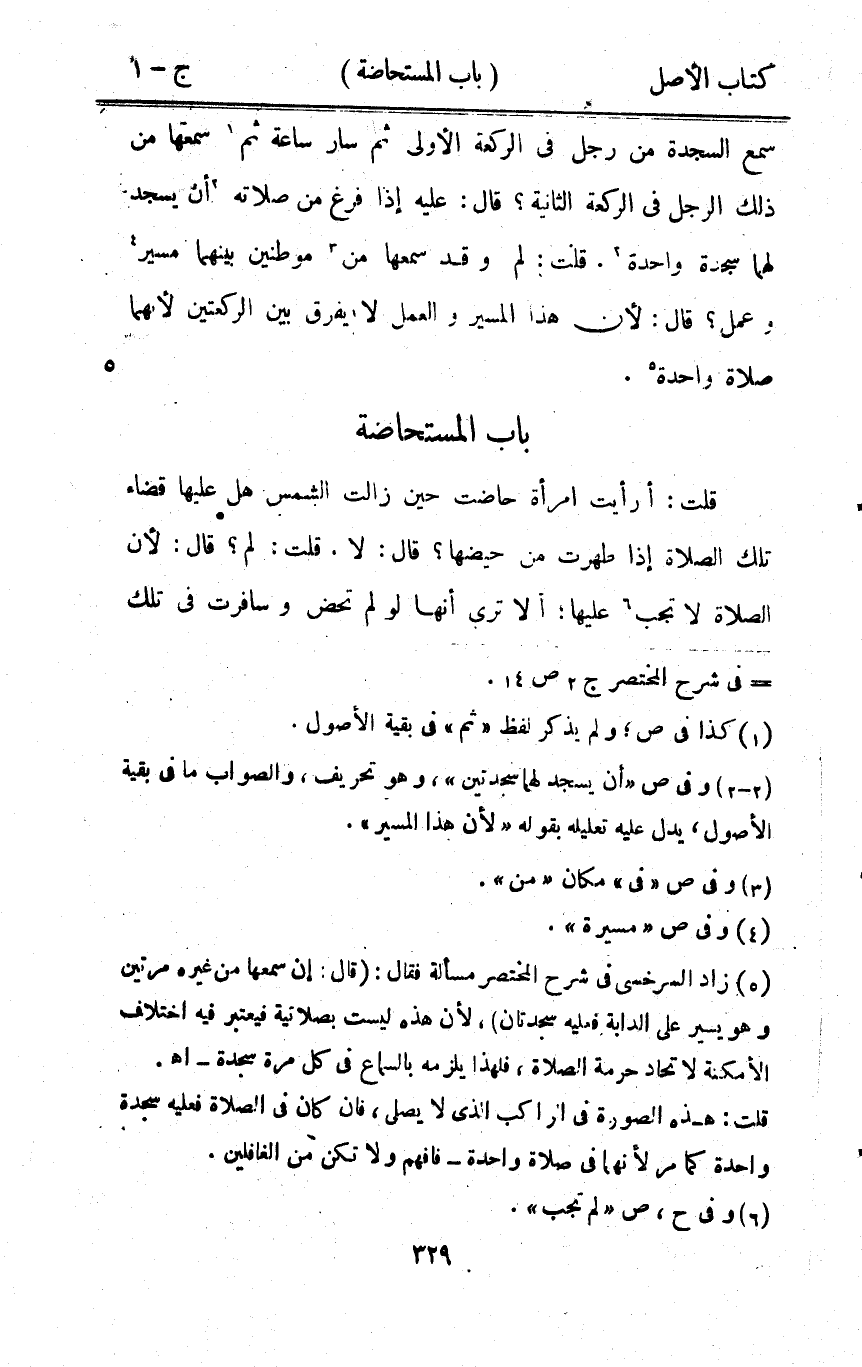 كتاب الأصل ( باب المستحاضة ) ج – ١
سمع السجدة من رجل فى الركعة الأولى ثم سار ساعة ثم ١ سمعها من
ذلك الرجل فى الركعة الثانية ؟ قال : عليه إذا فرغ من صلاته ٢ أن يسجد
لها سجدة واحدة ٢ . قلت : لم و قد سمعها من ٣ موطنين بينهما مسير ٤
و عمل ؟ قال : لأن هذا المسير و العمل لا يفرق بين الركعتين لأنهما
صلاة واحدة ٥ . ٥
باب المستحاضة
قلت : أ رأيت امرأة حاضت حين زالت الشمس هل عليها قضاء
تلك الصلاة إذا طهرت من حيضها ؟ قال : لا . قلت : لم ؟ قال : لأن
الصلاة لا تجب ٦ عليها ؛ ألا ترى أنها لو لم تحض و سافرت فى تلك
= فى شرح المختصر ج ٢ ص ١٤ .
(١) كذا فى ص ؛ و لم يذكر لفظ « ثم » فى بقية الأصول .
(٢-٢) و فى ص « أن يسجد لها سجدتين » ، و هو تحريف ، و الصواب ما فى بقية
الأصول ، يدل عليه تعليله بقوله « لأن هذا المسير » .
(٣) و فى ص « فى » مكان « من » .
(٤) و فى ص « مسيرة » .
(٥) زاد السرخسى فى شرح المختصر مسألة فقال : (قال : إن سمعها من غيره مرتين
و هو يسير على الدابة فعليه سجدتان) ، لأن هذه ليست بصلاتية فيعتبر فيه اختلاف
الأمكنة لا تحاد حرمة الصلاة ، فلهذا يلزمه بالسماع فى كل مرة سجدة – اه .
قلت : هذه الصورة فى الراكب الذى لا يصلى ، فان كان فى الصلاة فعليه سجدة
واحدة كما مر لأنها فى صلاة واحدة – فافهم و لا تكن من الغافلين .
(٦) و فى ح ، ص « لم تجب » .
٣٢٩